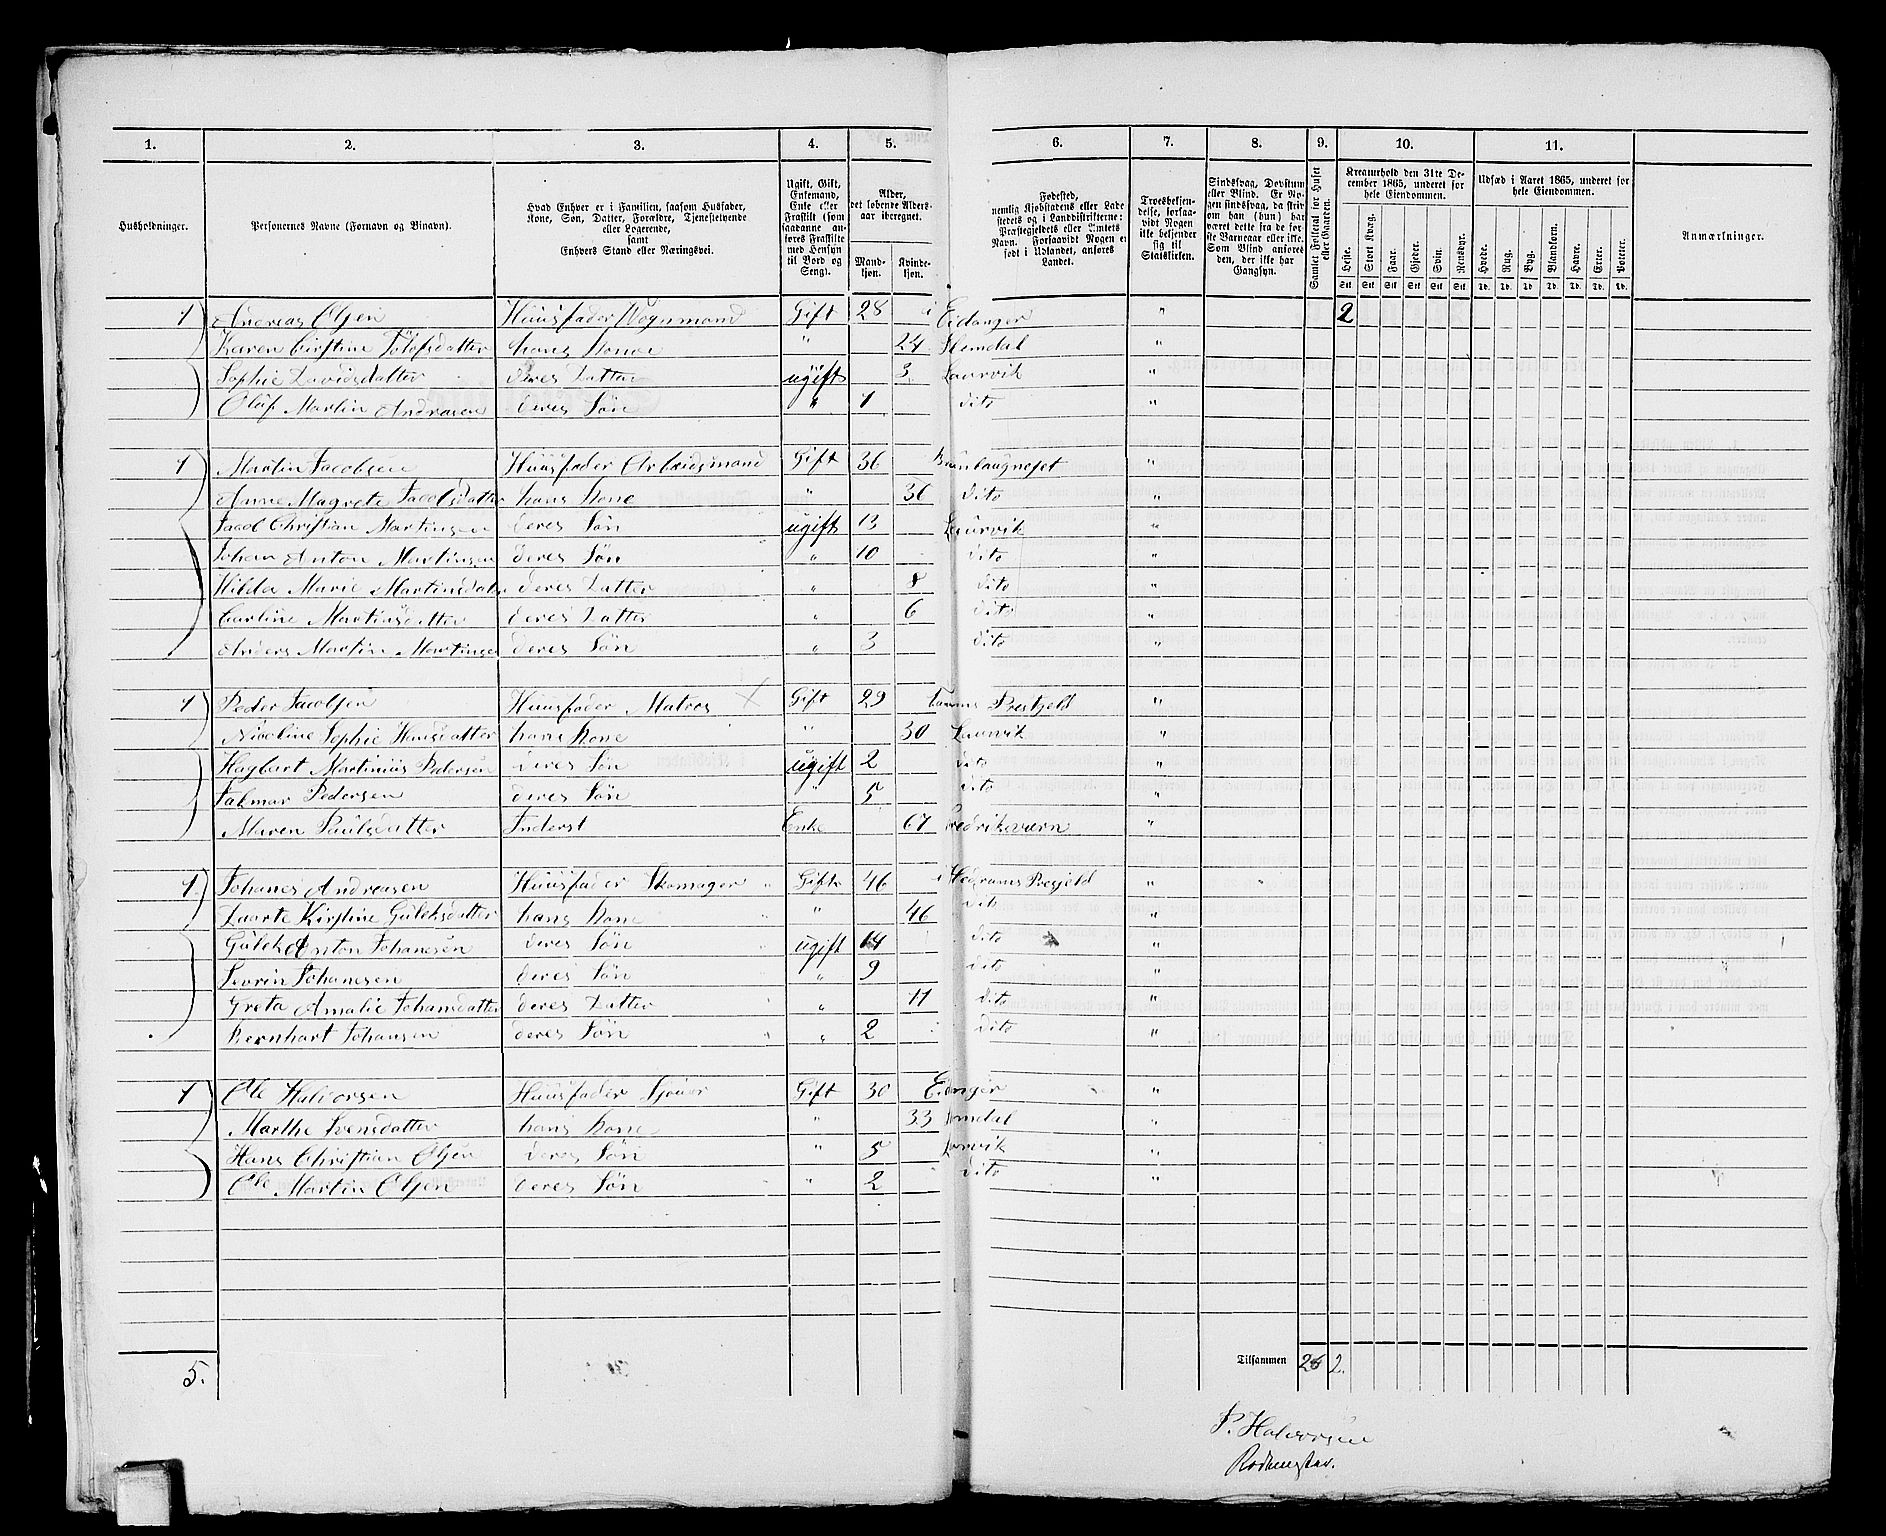 1. 2. 3. 4. 5. 6. 7. 8. 9. 10. 11.
Husholdninger.
Personernes Navne (Fornavn og Binavn).
Hvad Enhver er i Familien, saasom Husfader,
Kone, Søn, Datter, Forældre, Tjenestetyende
eller Logerende,
samt
Enhvers Stand eller Næringsvei.
Ugift, Gift,
Enkemand,
Enke eller
Fraskilt (som
saadanne an-
føres Fraskilte
med Hensyn
til Bord og
Seng).
Alder,
det løbende Alders-
aar iberegnet.
Mand-
kjøn.
Kvinde-
kjøn.
Fødested,
nemlig Kjøbstadens eller Lade-
stedets og i Landdistrikterne:
Præstegjeldets eller Amtets
Navn. Forsaavidt Nogen er
født i Udlandet, anføres
Landet.
Troesbekjen-
delse, forsaa-
vidt Nogen
ikke bekjender
sig til
Statskirken.
Sindssvag, Døvstum
eller Blind. Er No-
gen sindssvag, da skriv
om han (hun) har
været dette fra de før-
ste Barneaar eller ikke.
Som Blind anføres
den, der ikke har
Gangsyn.
Samlet Folketal for Huset
eller Gaarden.
Kreaturhold den 31te De-
cember 1865, underet for
hele Eiendommen.
Heste. Stort Kvæg. Faar. Gjeder. Svin. Rensdyr.
Stk. Stk. Stk. Stk. Stk. Stk.
Udsæd i Aaret 1865, underet for
hele Eiendommen.
Hvede. Rug. Byg. Blandkorn. Havre. Erter. Poteter.
Td. Td. Td. Td. Td. Td. Td.
Anmærkninger.
1 Andreas Olsen Huusfader Vognmand Gift 28 i Eidanger " 2
Karen Kirstine Tolofsdatter hans Kone " 24 Slemdal "
Sophie Davidsdatter deres Datter ugift 3 Laurvik "
Olaf Martin Andrasen deres Søn " 1 dito "
1 Martin Jacobsen Huusfader Arbeidsmand Gift 36 Brunlaugnæset "
Anne Magrete Jacobsdatter hans Kone " 36 dito "
Jacob Christian Martinsen deres Søn ugift 13 Laurvik "
Johan Anton Martinsen deres Søn " 10 dito "
Hilda Marie Martinsdatter deres Datter " 8 dito "
Carline Martinsdatter deres Datter " 6 dito "
Anders Martin Martinsen deres Søn " 3 dito "
1 Peder Jacobsen Huusfader Matros X Gift 29 Prestjeld "
Nicoline Sophie Hansdatter hans Kone " 30 Laurvik "
Hagbart Martinius Pedersen deres Søn ugift 2 dito "
Jalmar Pedersen deres Søn " 5 dito "
Maren Paulsdatter Inderst Enke 67 Fredriksværn "
1 Johanes Andreasen Huusfader Skomager " Gift 46 i Hedrums Presjeld " "
Daarte Kirstine Guleksdatter hans Kone " " 46 dito "
Gulek Anton Johanesen deres Søn " ugift 14 dito "
Sevrin Johanesen deres Søn " 9 dito "
Greta Amalie Johansdatter deres Datter " 11 dito "
Bernhart Johansen deres Søn " " 2 dito "
1 Ole Halvorsen Huusfader Sjouer Gift 30 Eidanger "
Marthe Svensdatter hans Kone " 33 "
Hans Christian Olsen deres Søn " 5 Larvik "
Ole Martin Olsen deres Søn " 2 dito "
5. Tilsammen 26 2.
P. Halvorsen
Rodemester.